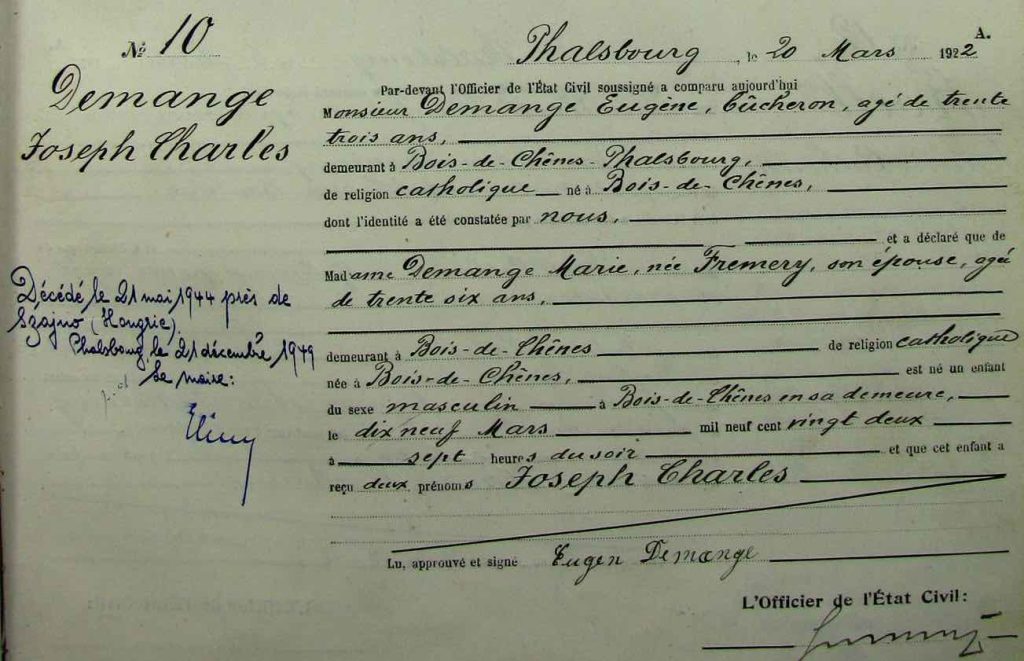 № 10
Demange
Joseph Charles
Décédé le 21 mai 1944 près de
Szajno (Hongrie).
Phalsbourg, le 21 décembre 1949
Le maire:
A.
Phalsbourg, le 20 Mars 1922
Par-devant l'Officier de l'État Civil soussigné a comparu aujourd'hui
Monsieur Demange Eugène, bûcheron, agé de trente
trois ans,
demeurant à Bois-de-Chênes-Phalsbourg,
de religion catholique né à Bois-de-Chênes,
dont l'identité a été constatée par nous,
et a déclaré que de
Madame Demange Marie, née Fremery, son épouse, agée
de trente six ans,
demeurant à Bois-de-Chênes de religion catholique
née à Bois-de-Chênes, est né un enfant
du sexe masculin à Bois-de-Chênes en sa demeure,
le dix neuf Mars mil neuf cent vingt deux
à sept heures du soir et que cet enfant a
reçu deux prénoms Joseph Charles
Lu, approuvé et signé Eugen Demange
L'Officier de l'État Civil: